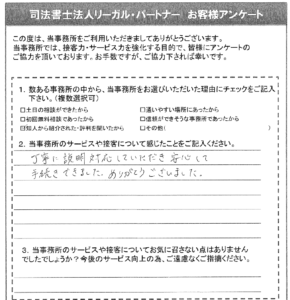 司法書士法人リーガル・パートナー お客様アンケート
この度は、当事務所をご利用いただきましてありがとうございます。
当事務所では、接客力・サービス力を強化する目的で、皆様にアンケートの
ご協力を頂いております。お手数ですが、ご協力下されば幸いです。
1. 数ある事務所の中から、当事務所をお選びいただいた理由にチェックをご記入
下さい。(複数選択可)
□土日の相談ができたから □通いやすい場所にあったから
□初回無料相談であったから □信頼ができそうな事務所であったから
☑知人から紹介された・評判を聞いたから □その他( )
2. 当事務所のサービスや接客について感じたことをご記入ください。
丁寧に説明対応していただき安心して
手続きできました。ありがとうございました。
3. 当事務所のサービスや接客についてお気に召さない点はありません
でしたでしょうか?今後のサービス向上の為、ご遠慮なくご指摘ください。